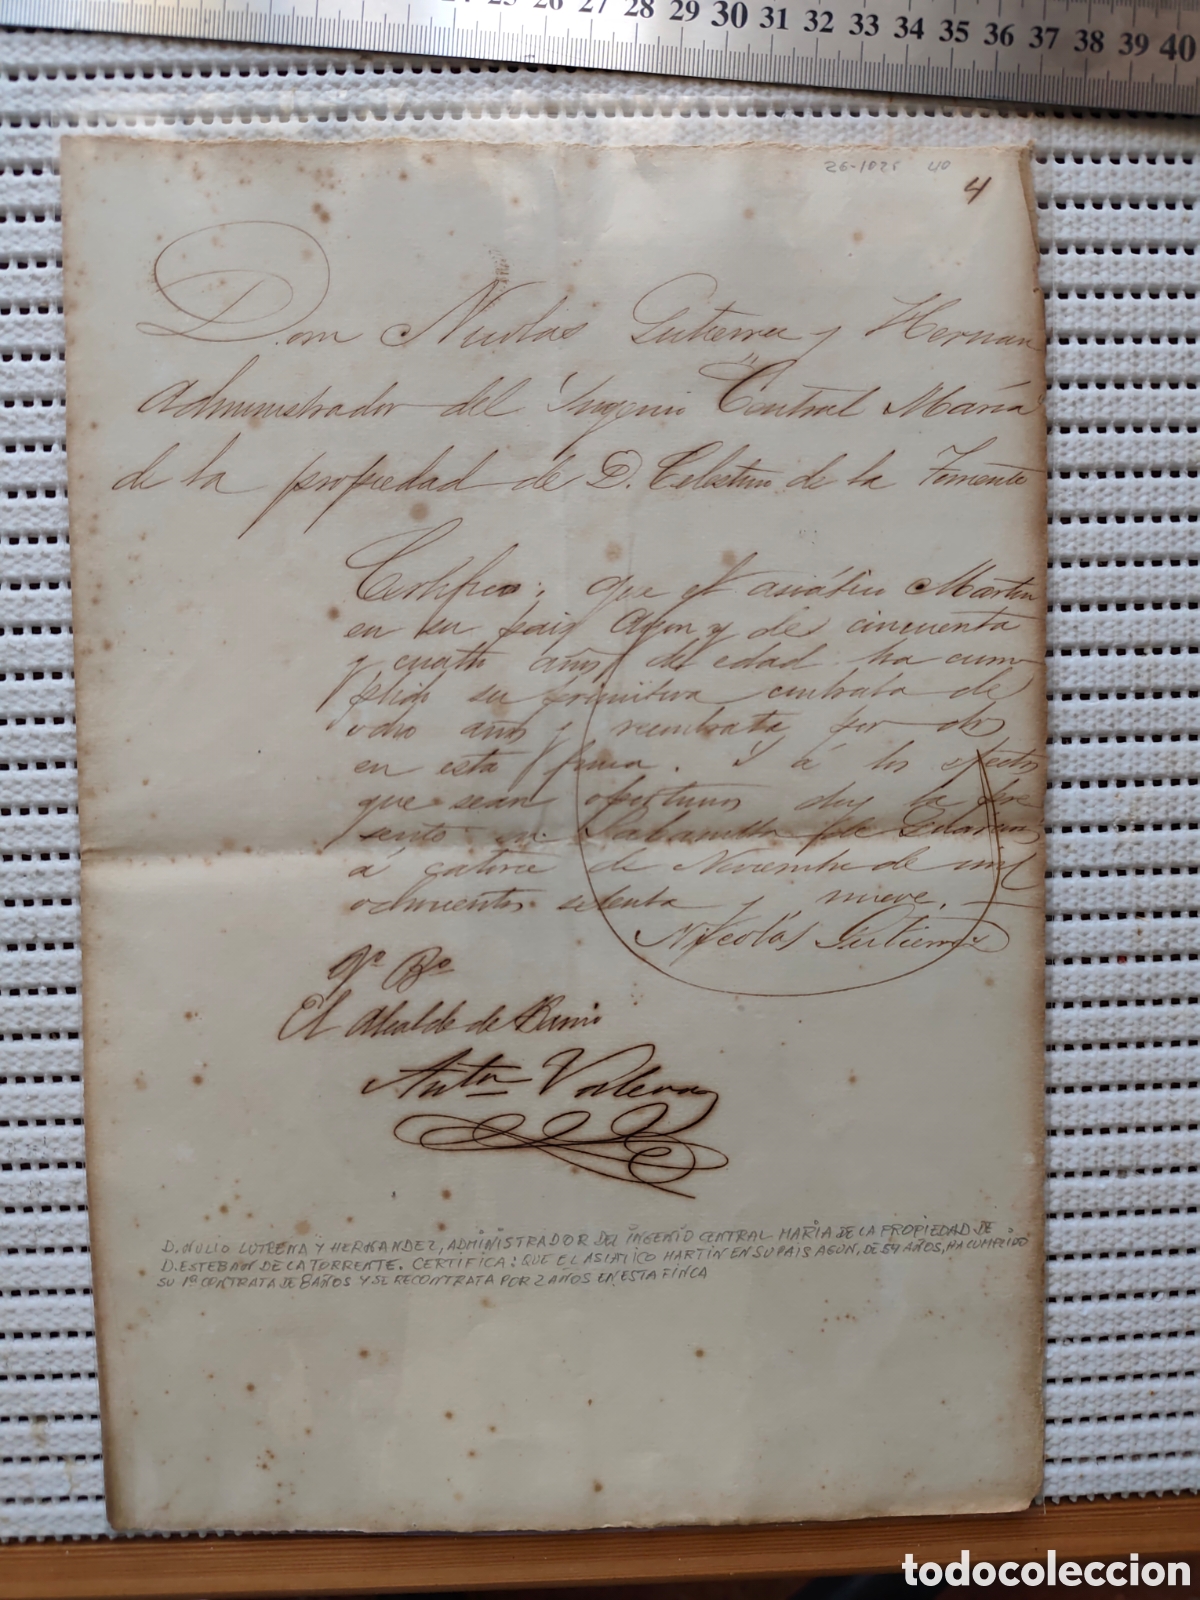 24 25 26 27 28 29 30 31 32 33 34 35 36 37 38 39 40
26-1021 40
4
Don Nicolás Gutierrez y Hernan
Administrador del Ingenio Central María
de la propiedad de D. Celestino de la Torriente
Certifico; que el asiático Martin
en su pais Agon y de cincuenta
y cuatro años de edad ha cum
plido su primitiva contrata de
ocho años y recontrata por dos
en esta finca. Y á los efectos
que sean oportunos doy la pre
sente en Sabanilla de
á catorce de Noviembre de mil
ochocientos setenta y nueve.
Nicolás Gutierrez
Vº Bº
El Alcalde de Barrio
Antº Valera
D. NULIO LUTRENA Y HERNANDEZ, ADMINISTRADOR DEL INGENIO CENTRAL MARIA DE LA PROPIEDAD DE
D. ESTEBAN DE LA TORRENTE. CERTIFICA: QUE EL ASIATICO MARTIN EN SU PAIS AGUN, DE 54 AÑOS, HA CUMPLIDO
SU 1ª CONTRATA DE 8 AÑOS Y SE RECONTRATA POR 2 AÑOS EN ESTA FINCA
todocoleccion